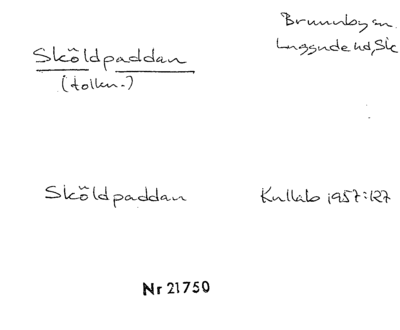 Brunnby sn
Luggude hd, Sk
Sköldpaddan
(tolkn.)
Sköldpaddan
Kullabo 1957:127
Nr 21750